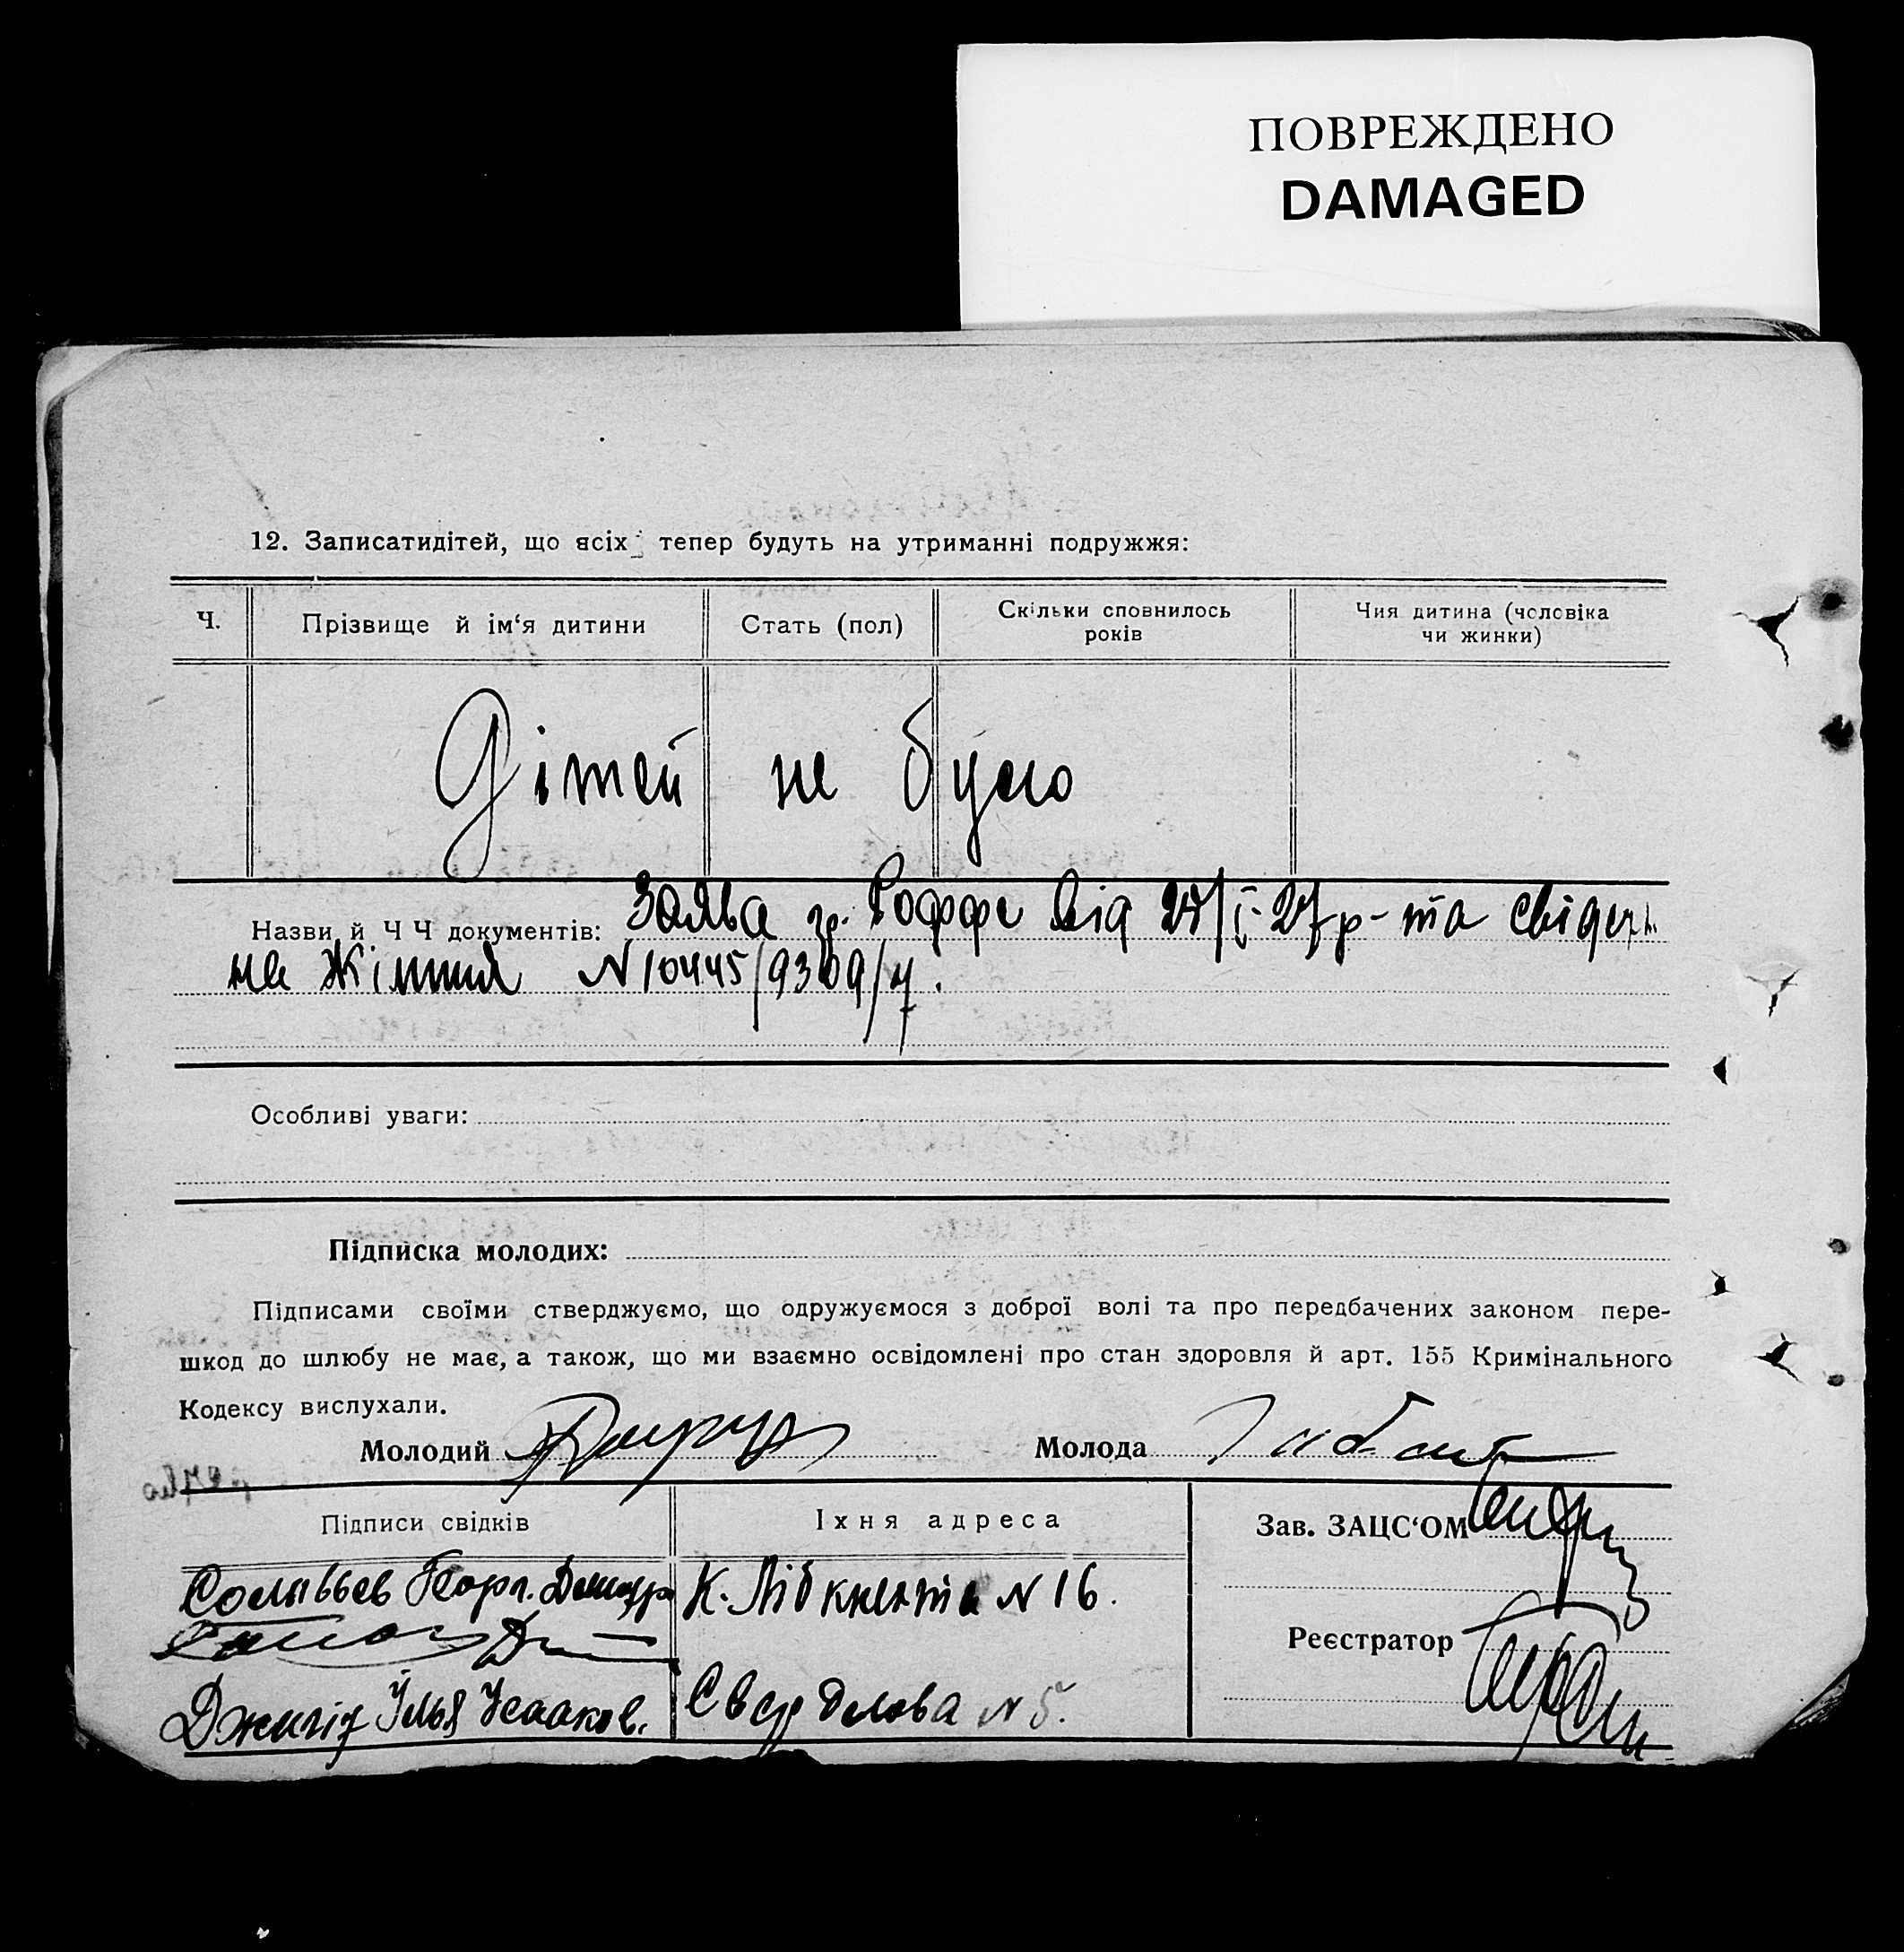 ПОВРЕЖДЕНО
DAMAGED
12. Записатидітей, що всіх тепер будуть на утриманні подружжя:
Ч. Прізвище й ім‘я дитини Стать (пол) Скільки сповнилось років Чия дитина (чоловіка чи жинки)
Дітей не було
Назви й Ч Ч документів: Заява гр. Йоффе від 27/I-27р- та свідоцт.
на Життя N 10445/9309/
Особливі уваги:
Підписка молодих:
Підписами своїми стверджуємо, що одружуємося з доброї волі та про передбачених законом пере-
шкод до шлюбу не має, а також, що ми взаємно освідомлені про стан здоровля й арт. 155 Кримінального
Кодексу вислухали.
Молодий Молода
Підписи свідків Їхня адреса Зав. ЗАЦС‘ОМ
Соловьев Георг. К. Лібкнехта N 16.
Реєстратор
Ілья Исааков. Свердлова N 5.